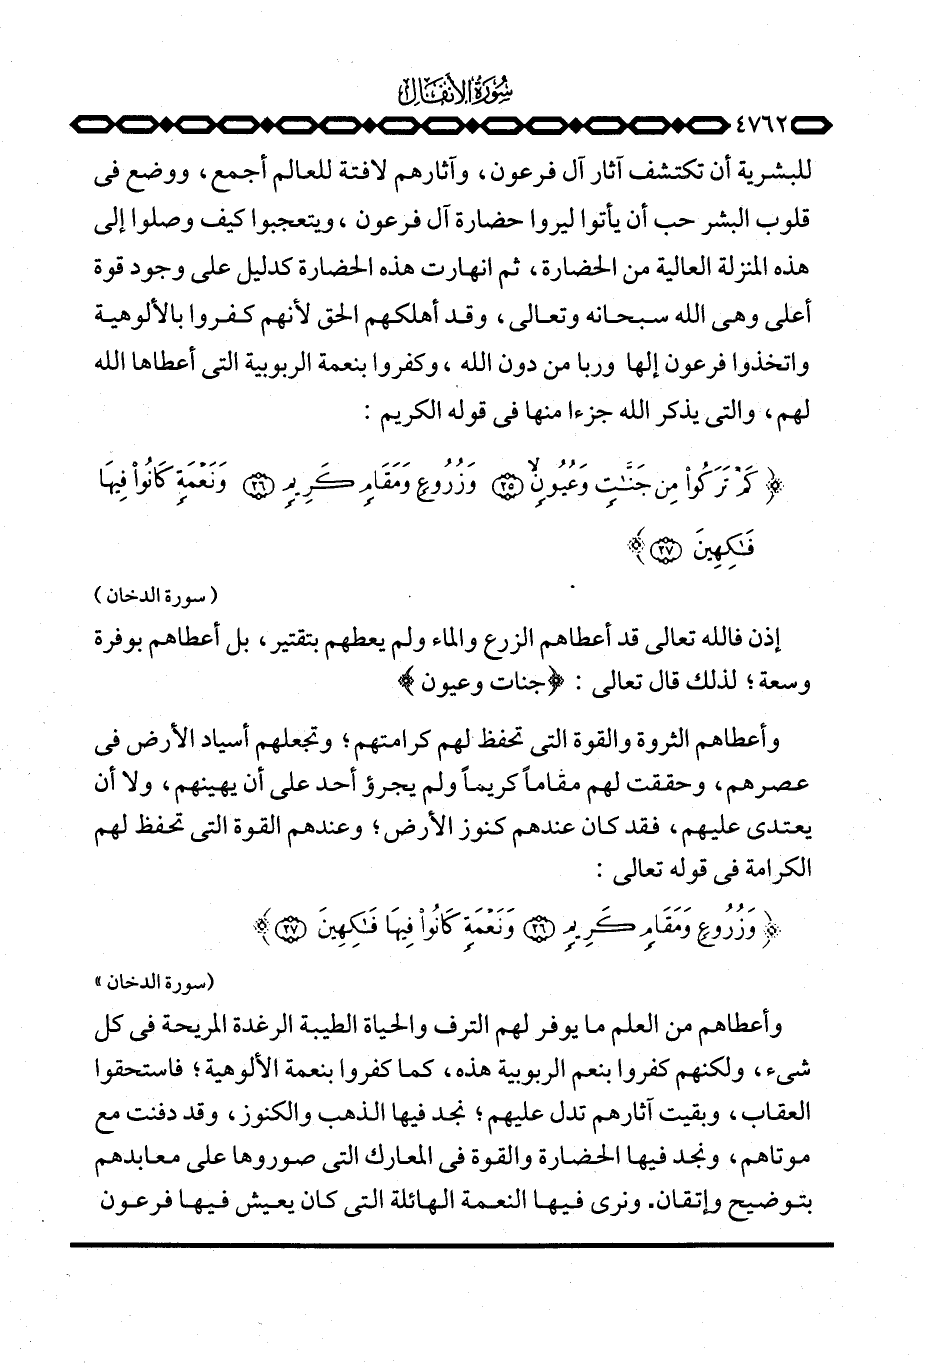 سورة الأنفال
٤٧٦٢
للبشرية أن تكتشف آثار آل فرعون، وآثارهم لافتة للعالم أجمع، ووضع فى
قلوب البشر حب أن يأتوا ليروا حضارة آل فرعون ، ويتعجبوا كيف وصلوا إلى
هذه المنزلة العالية من الحضارة، ثم انهارت هذه الحضارة كدليل على وجود قوة
أعلى وهى الله سبحانه وتعالى، وقد أهلكهم الحق لأنهم كفروا بالألوهية
واتخذوا فرعون إلها وربا من دون الله ، وكفروا بنعمة الربوبية التى أعطاها الله
لهم، والتى يذكر الله جزءا منها فى قوله الكريم :
﴿ كَمْ تَرَكُوا۟ مِن جَنَّـٰتٍ وَعُيُونٍ ۙ ٢٥ وَزُرُوعٍ وَمَقَامٍ كَرِيمٍ ٢٦ وَنَعْمَةٍ كَانُوا۟ فِيهَا
فَـٰكِهِينَ ٢٧ ﴾
( سورة الدخان )
إذن فالله تعالى قد أعطاهم الزرع والماء ولم يعطهم بتقتير، بل أعطاهم بوفرة
وسعة؛ لذلك قال تعالى : ﴿جنات وعيون ﴾
وأعطاهم الثروة والقوة التى تحفظ لهم كرامتهم؛ وتجعلهم أسياد الأرض فى
عصرهم، وحققت لهم مقاماً كريماً ولم يجرؤ أحد على أن يهينهم، ولا أن
يعتدى عليهم، فقد كان عندهم كنوز الأرض؛ وعندهم القوة التى تحفظ لهم
الكرامة فى قوله تعالى :
﴿ وَزُرُوعٍ وَمَقَامٍ كَرِيمٍ ٢٦ وَنَعْمَةٍ كَانُوا۟ فِيهَا فَـٰكِهِينَ ٢٧ ﴾
(سورة الدخان »
وأعطاهم من العلم ما يوفر لهم الترف والحياة الطيبة الرغدة المريحة فى كل
شىء، ولكنهم كفروا بنعم الربوبية هذه، كما كفروا بنعمة الألوهية؛ فاستحقوا
العقاب، وبقيت آثارهم تدل عليهم؛ نجد فيها الذهب والكنوز، وقد دفنت مع
موتاهم، ونجد فيها الحضارة والقوة فى المعارك التى صوروها على معابدهم
بتوضيح وإتقان. ونرى فيها النعمة الهائلة التى كان يعيش فيها فرعون